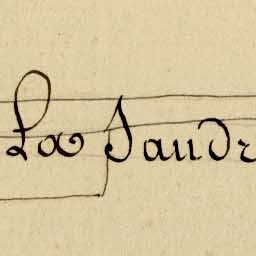 La Jaudr